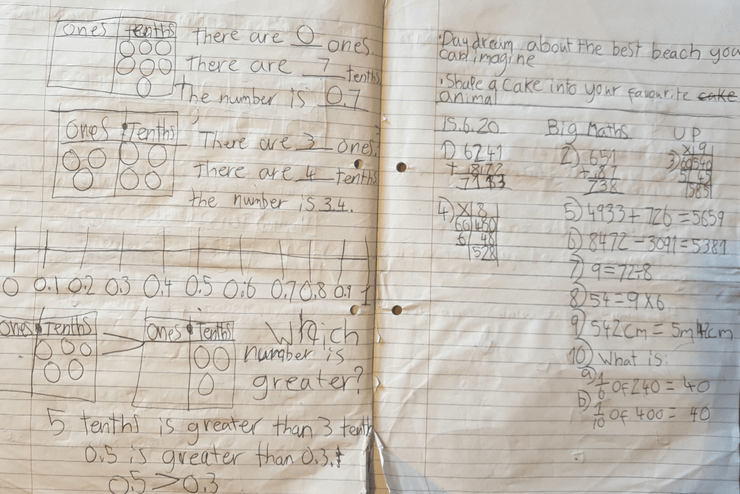 Ones Tenths
There are 0 ones.
There are 7 tenths
The number is 0.7
Ones Tenths
There are 3 ones.
There are 4 tenths
the number is 3.4.
0 0.1 0.2 0.3 0.4 0.5 0.6 0.7 0.8 0.9 1
Ones Tenths > Ones Tenths
Which
number is
greater?
5 tenths is greater than 3 tenth
0.5 is greater than 0.3.
0.5 > 0.3
• Day dream about the best beach you
can imagine
• Shape a cake into your favourite cake
animal
15.6.20 Big Maths UP
1) 6241
2) 651
+ 87
738
3) X 9
4) X 8
60 480
6 48
528
5) 4933 + 726 = 5659
6) 8472 - 3091 = 5381
7) 9 = 72 ÷ 8
8) 54 = 9 X 6
9) 542cm = 5m 42cm
10) What is:
a) 1/6 of 240 = 40
b) 1/10 of 400 = 40